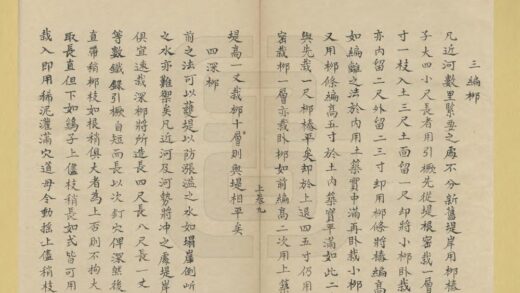 三編栁
凡近河數里緊要之處不分新舊堤岸用栁樁
子大四小尺長者用引橛先從堤根密栽一層
寸一枝入土三尺土面留一尺却將小栁卧栽
亦内留二尺外留二三寸却用栁條將樁編高
如編籬之法於内用土築實平滿再卧栽小栁
又用栁條編高五寸於土内築實平滿如此二
與先栽一尺栁樁平矣却於上退四五寸仍用
密栽栁一層亦栽卧栁如前編高二次用土築
上卷九
堤高一丈栽栁十層則與堤相平矣
四深栁
前之法可以護堤以防漲溢之水如塌崖倒岸
之水亦難禦矣凡近河及河勢將冲之處堤岸
俱宜速栽深栁將所造長四尺長八尺長一丈
等數鐵錐引橛自短而長以次釘穴俾深然後
直帶稍栁枝如根稍俱大者為上否則不拘大
取長直但下如鷄子上儘枝稍長如式皆可用
栽入即用稀泥灌滿穴道毋令動搖上儘枝稍